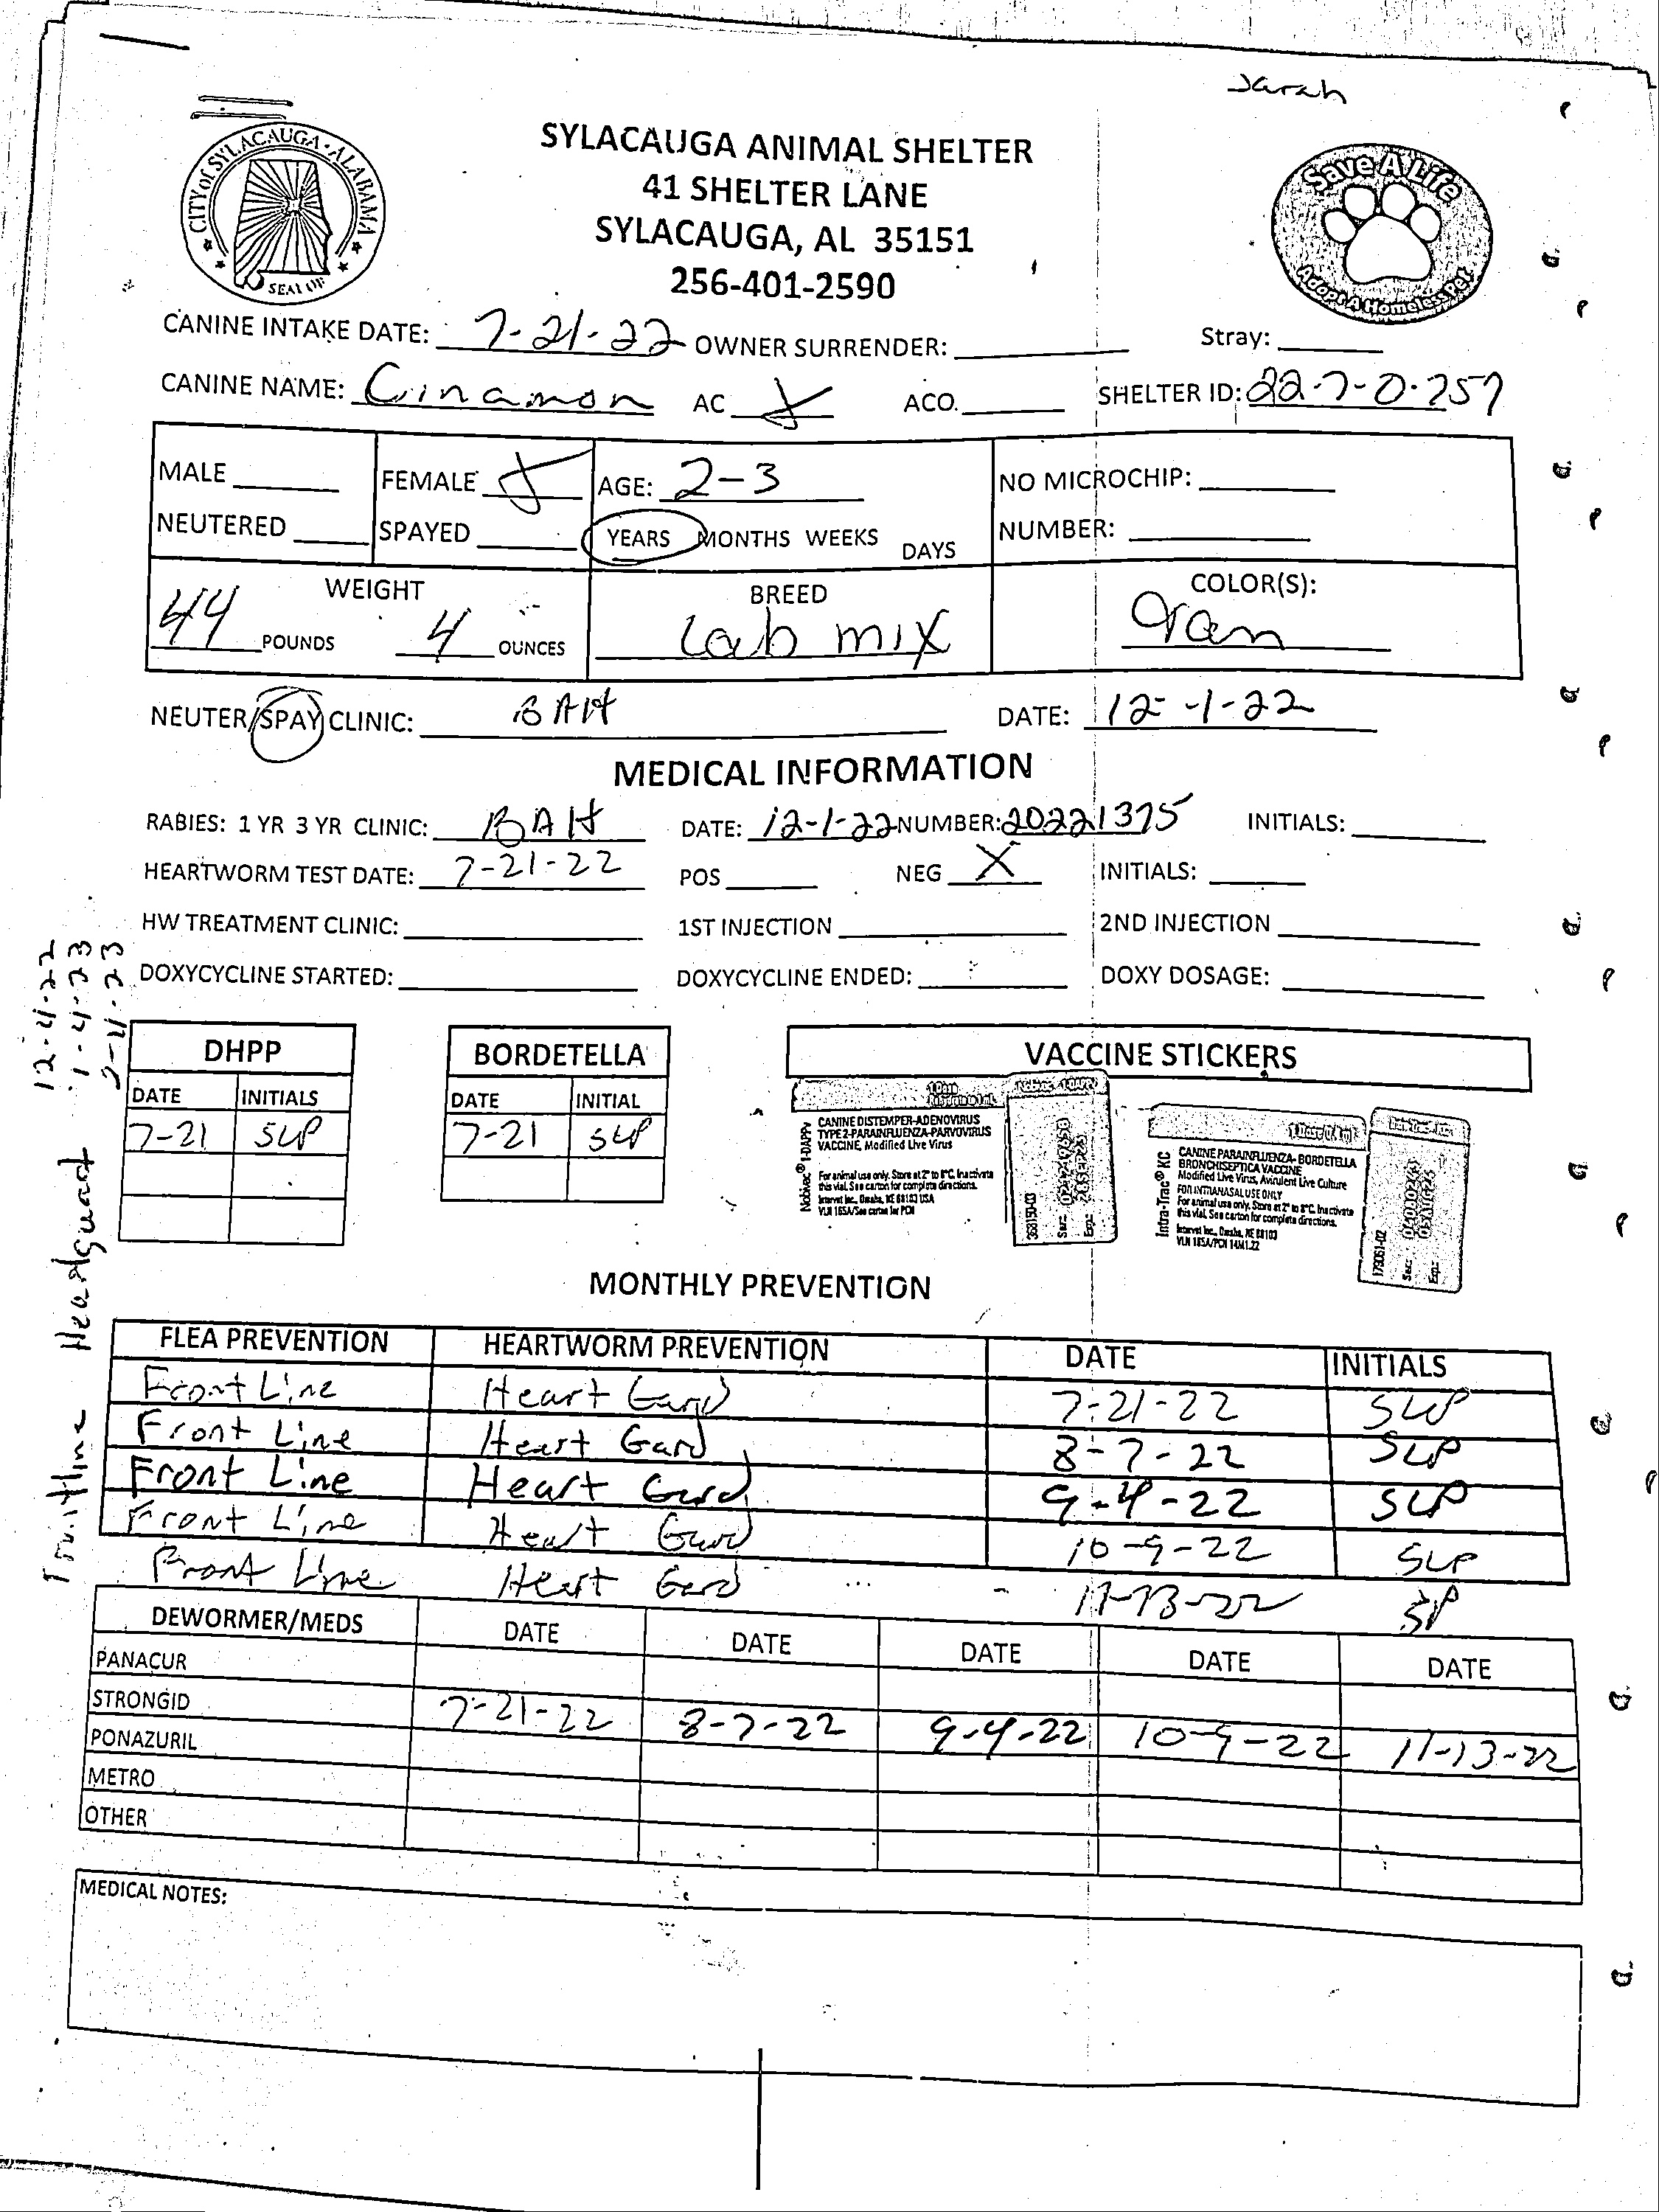 Sarah
SYLACAUGA ANIMAL SHELTER
41 SHELTER LANE
SYLACAUGA, AL 35151
256-401-2590
CITY of SYLACAUGA · ALABAMA
SEAL OF
Save A Life
Adopt A Homeless Pet
CANINE INTAKE DATE: 7-21-22 OWNER SURRENDER: Stray:
CANINE NAME: Cinamon AC X ACO. SHELTER ID: 22-7-D-757
MALE FEMALE X AGE: 2-3 NO MICROCHIP:
NEUTERED SPAYED YEARS MONTHS WEEKS DAYS NUMBER:
WEIGHT BREED COLOR(S):
44 POUNDS 4 OUNCES Lab mix Tan
NEUTER/SPAY CLINIC: BAH DATE: 12-1-22
MEDICAL INFORMATION
RABIES: 1 YR 3 YR CLINIC: BAH DATE: 12-1-22 NUMBER: 20221375 INITIALS:
HEARTWORM TEST DATE: 7-21-22 POS NEG X INITIALS:
HW TREATMENT CLINIC: 1ST INJECTION 2ND INJECTION
DOXYCYCLINE STARTED: DOXYCYCLINE ENDED: DOXY DOSAGE:
12-4-22
1-4-23
2-4-23
DHPP BORDETELLA VACCINE STICKERS
DATE INITIALS DATE INITIAL
7-21 SLP 7-21 SLP
Nobivac® 1-DAPPv
CANINE DISTEMPER-ADENOVIRUS
TYPE 2-PARAINFLUENZA-PARVOVIRUS
VACCINE, Modified Live Virus
For animal use only. Store at 2° to 8°C. Inactivate
this vial. See carton for complete directions.
Intervet Inc., Omaha, NE 68103 USA
VLN 165A/See carton for PCN
Ser.:
Exp.:
Intra-Trac® KC
1 Dose
CANINE PARAINFLUENZA- BORDETELLA
BRONCHISEPTICA VACCINE
Modified Live Virus, Avirulent Live Culture
FOR INTRANASAL USE ONLY
For animal use only. Store at 2° to 8°C. Inactivate
this vial. See carton for complete directions.
Intervet Inc., Omaha, NE 68103
VLN 165A/PCN 14M1.22
179061-02
Ser.:
Exp.:
MONTHLY PREVENTION
FLEA PREVENTION HEARTWORM PREVENTION DATE INITIALS
Front Line Heart Gard 7-21-22 SLP
Front Line Heart Gard 8-7-22 SLP
Front Line Heart Gard 9-4-22 SLP
Front Line Heart Gard 10-9-22 SLP
Front Line Heart Gard 11-13-22 SP
DEWORMER/MEDS DATE DATE DATE DATE DATE
PANACUR
STRONGID 7-21-22 8-7-22 9-4-22 10-9-22 11-13-22
PONAZURIL
METRO
OTHER
MEDICAL NOTES: